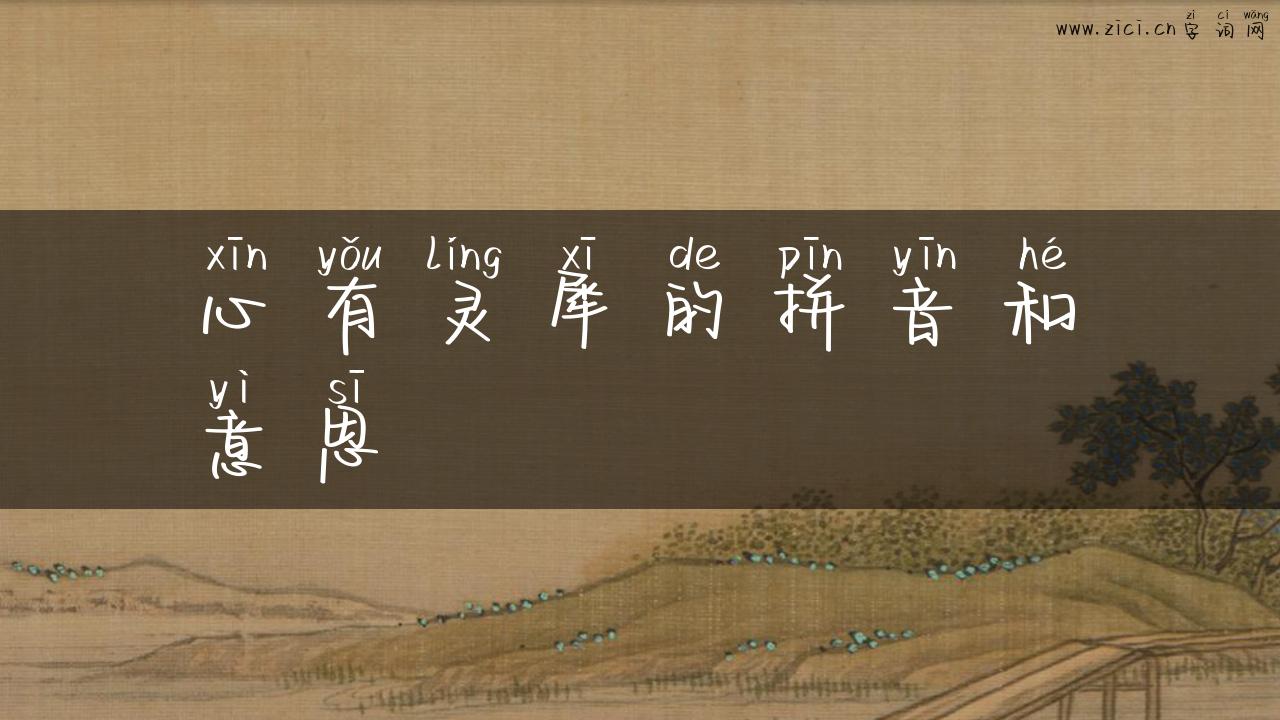 zì cí wǎng
www.zici.cn 字词网
xīn yǒu líng xī de pīn yīn hé
心有灵犀的拼音和
yì sī
意思